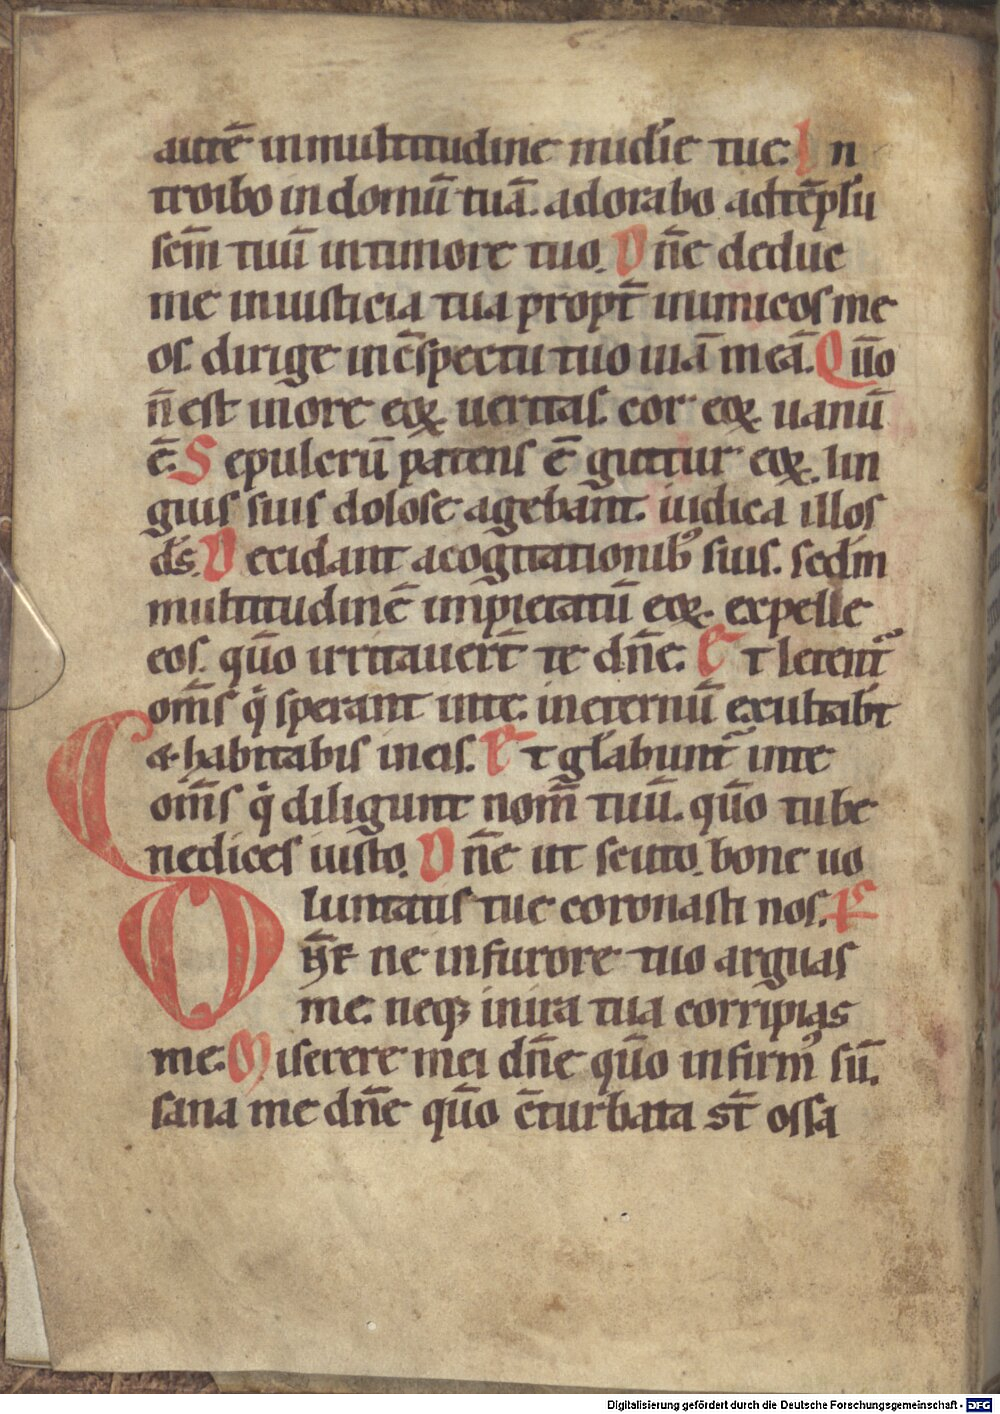 autē in multitudine mıs̄die tue. In
troibo in domū tuā. adorabo ad tēplū
sc̄m tuū in timore tuo. Dn̄e deduc
me in iusticia tua propt̄ inimicos me
os. dirige in c̄spectu tuo uiā meā. Qūo
n̄ est in ore eoꝝ ueritas. cor eoꝝ uanū
ē. Sepulcrū patens ē guttur eoꝝ. lin
guis suis dolose agebant. iudica illos
ds̄. Decidant a cogitationibꝰ suis. sedm̄
multitudinē impietatū eoꝝ. expelle
eos. qūo irritauert̄ te dn̄e. Et letent᷑
om̄s qͥ sperant in te. in eternū exultabt̄
& habitabis in eis. Et gl̄abunt᷑ in te
om̄s qͥ diligunt nom̄ tuū. qūo tu be
nedices iusto. Dn̄e ut scuto. bone uo
luntatis tue coronasti nos.
Dn̄e ne in furore tuo arguas
me. neqꝫ in ira tua corripias
me. Miserere mei dn̄e qūo infirmꝰ sū.
sana me dn̄e qūo c̄turbata st̄ ossa
Digitalisierung gefördert durch die Deutsche Forschungsgemeinschaft - DFG